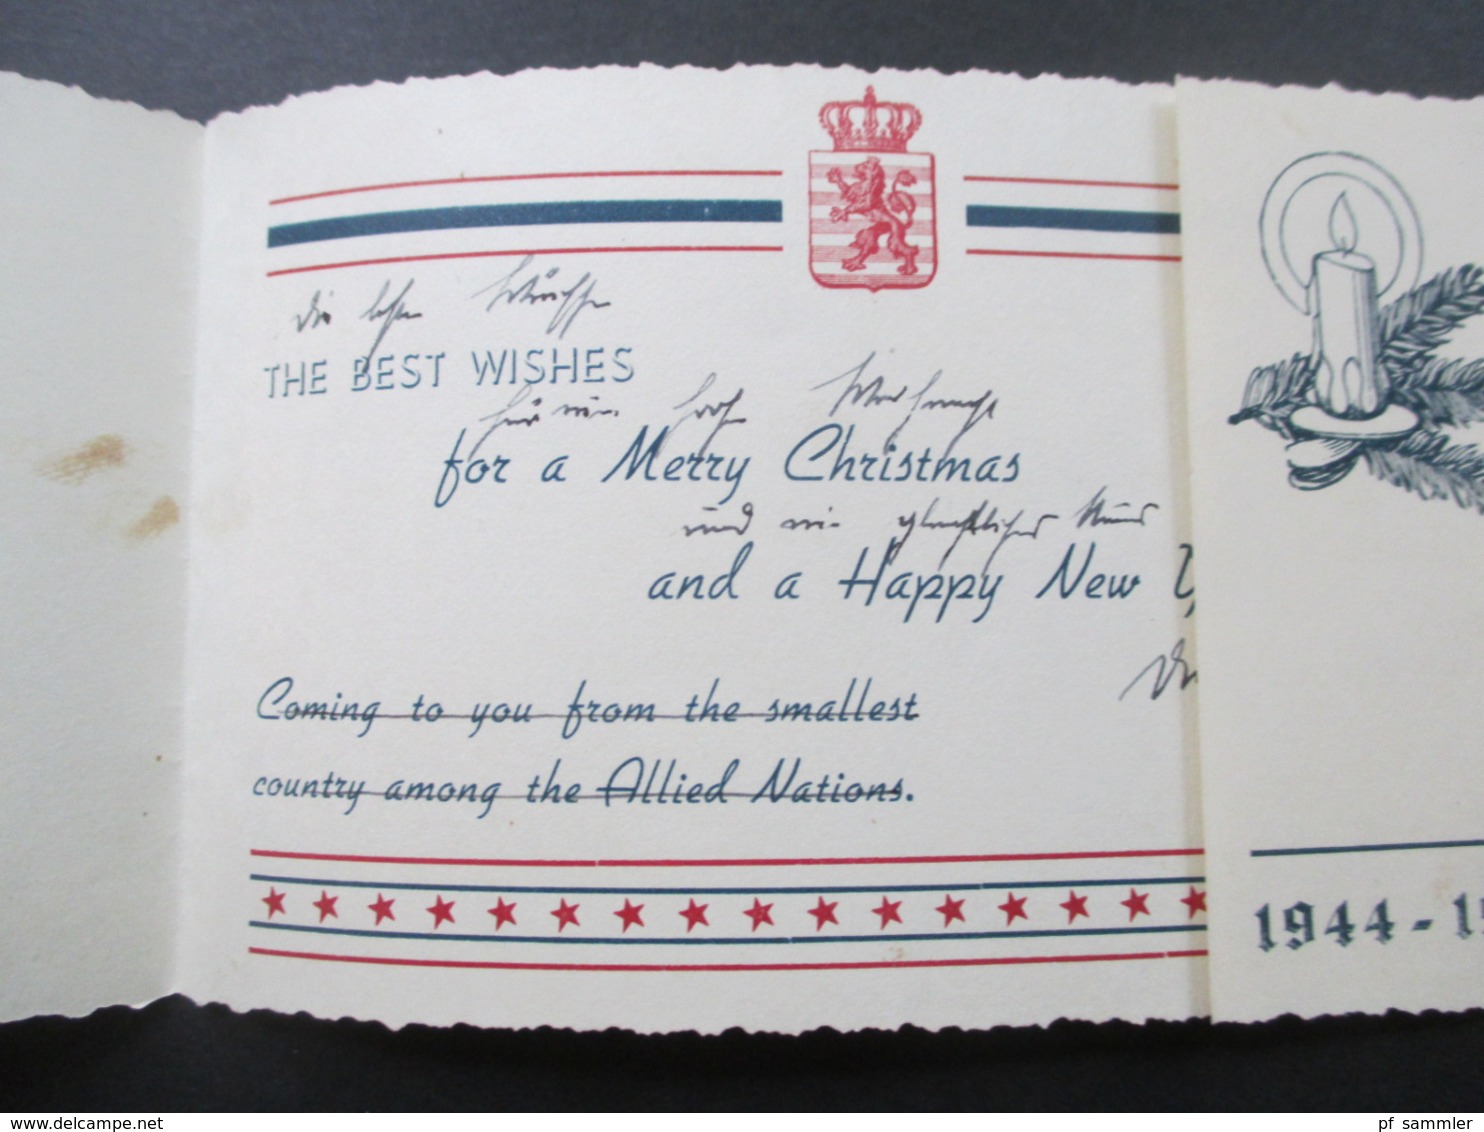 die besten Wünsche
THE BEST WISHES
für eine frohe Weihnacht
for a Merry Christmas
und ein glückliches Neues
and a Happy New
Coming to you from the smallest
country among the Allied Nations.
1944-1
www.delcampe.net
pf_sammler